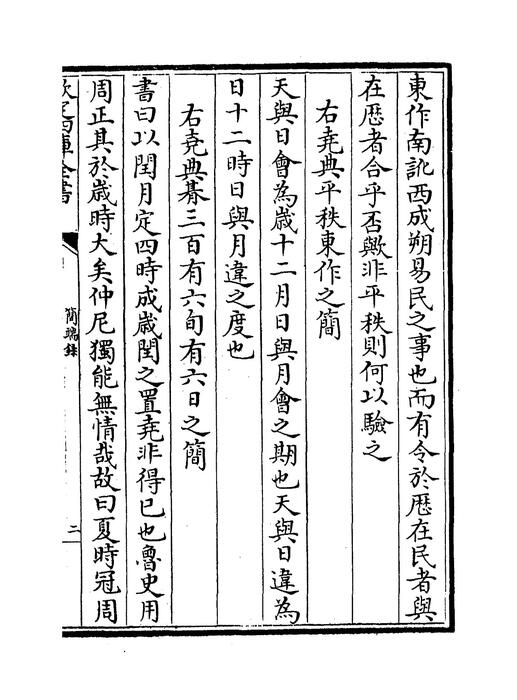 東作南訛西成朔易民之事也而有令於厯在民者與
在厯者合乎否歟非平秩則何以驗之
右堯典平秩東作之簡
天與日會為歲十二月日與月會之期也天與日違為
日十二時日與月違之度也
右堯典朞三百有六旬有六日之簡
書曰以閏月定四時成歲閏之置堯非得已也魯史用
周正其於歲時大矣仲尼獨能無情哉故曰夏時冠周
欽定四庫全書
簡端錄
二